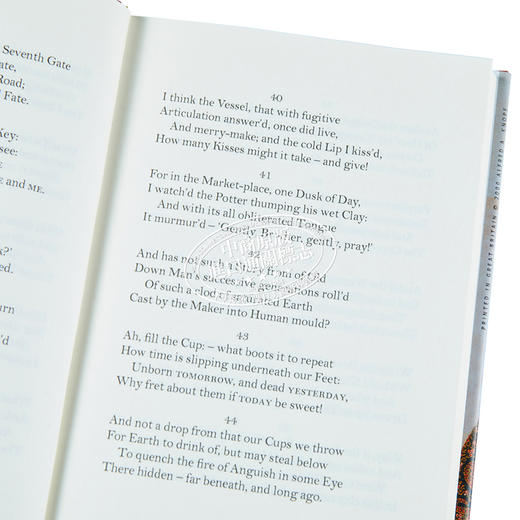 Seventh Gate
ate,
Road;
Fate.
Key:
see:
E and ME.
k?'
urn
d
40
I think the Vessel, that with fugitive
Articulation answer'd, once did live,
And merry-make; and the cold Lip I kiss'd,
How many Kisses might it take – and give!
41
For in the Market-place, one Dusk of Day,
I watch'd the Potter thumping his wet Clay:
And with its all obliterated Tongue
It murmur'd – 'Gently, Brother, gently, pray!'
42
And has not such a Story from of Old
Down Man's successive generations roll'd
Of such a clod of saturated Earth
Cast by the Maker into Human mould?
43
Ah, fill the Cup: – what boots it to repeat
How time is slipping underneath our Feet:
Unborn TOMORROW, and dead YESTERDAY,
Why fret about them if TODAY be sweet!
44
And not a drop from that our Cups we throw
For Earth to drink of, but may steal below
To quench the fire of Anguish in some Eye
There hidden – far beneath, and long ago.
PRINTED IN GREAT BRITAIN © 2000 ALFRED A. KNOPF